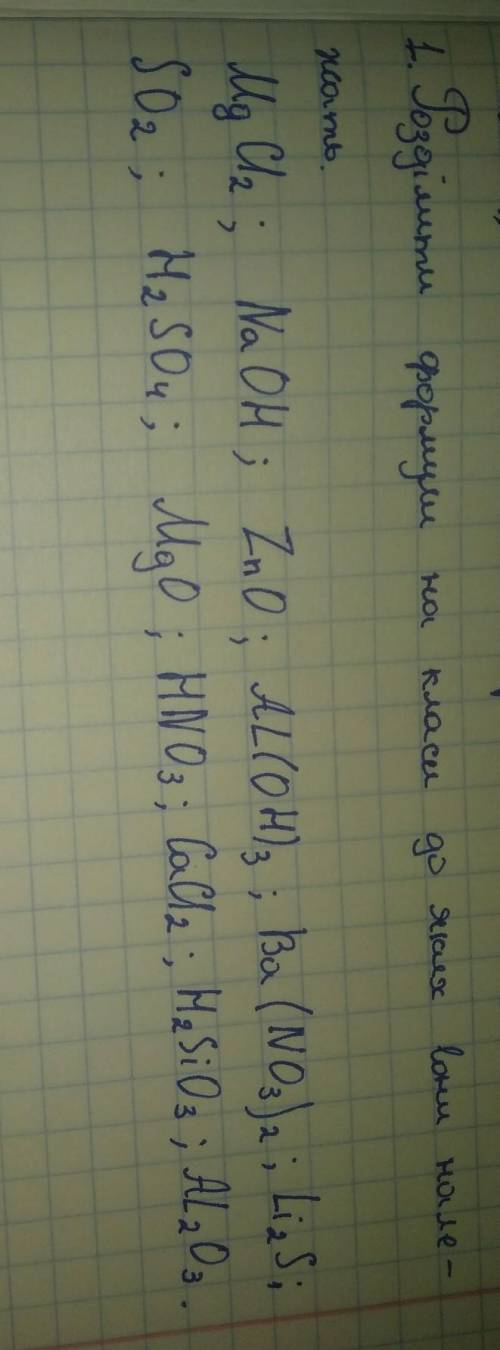 1. Розділити формули на класи до яких вони нале-
жать.
MgCl2; NaOH; ZnO; AL(OH)3; Ba(NO3)2; Li2S;
SO2; H2SO4; MgO; HNO3; CaCl2; H2SiO3; AL2O3.